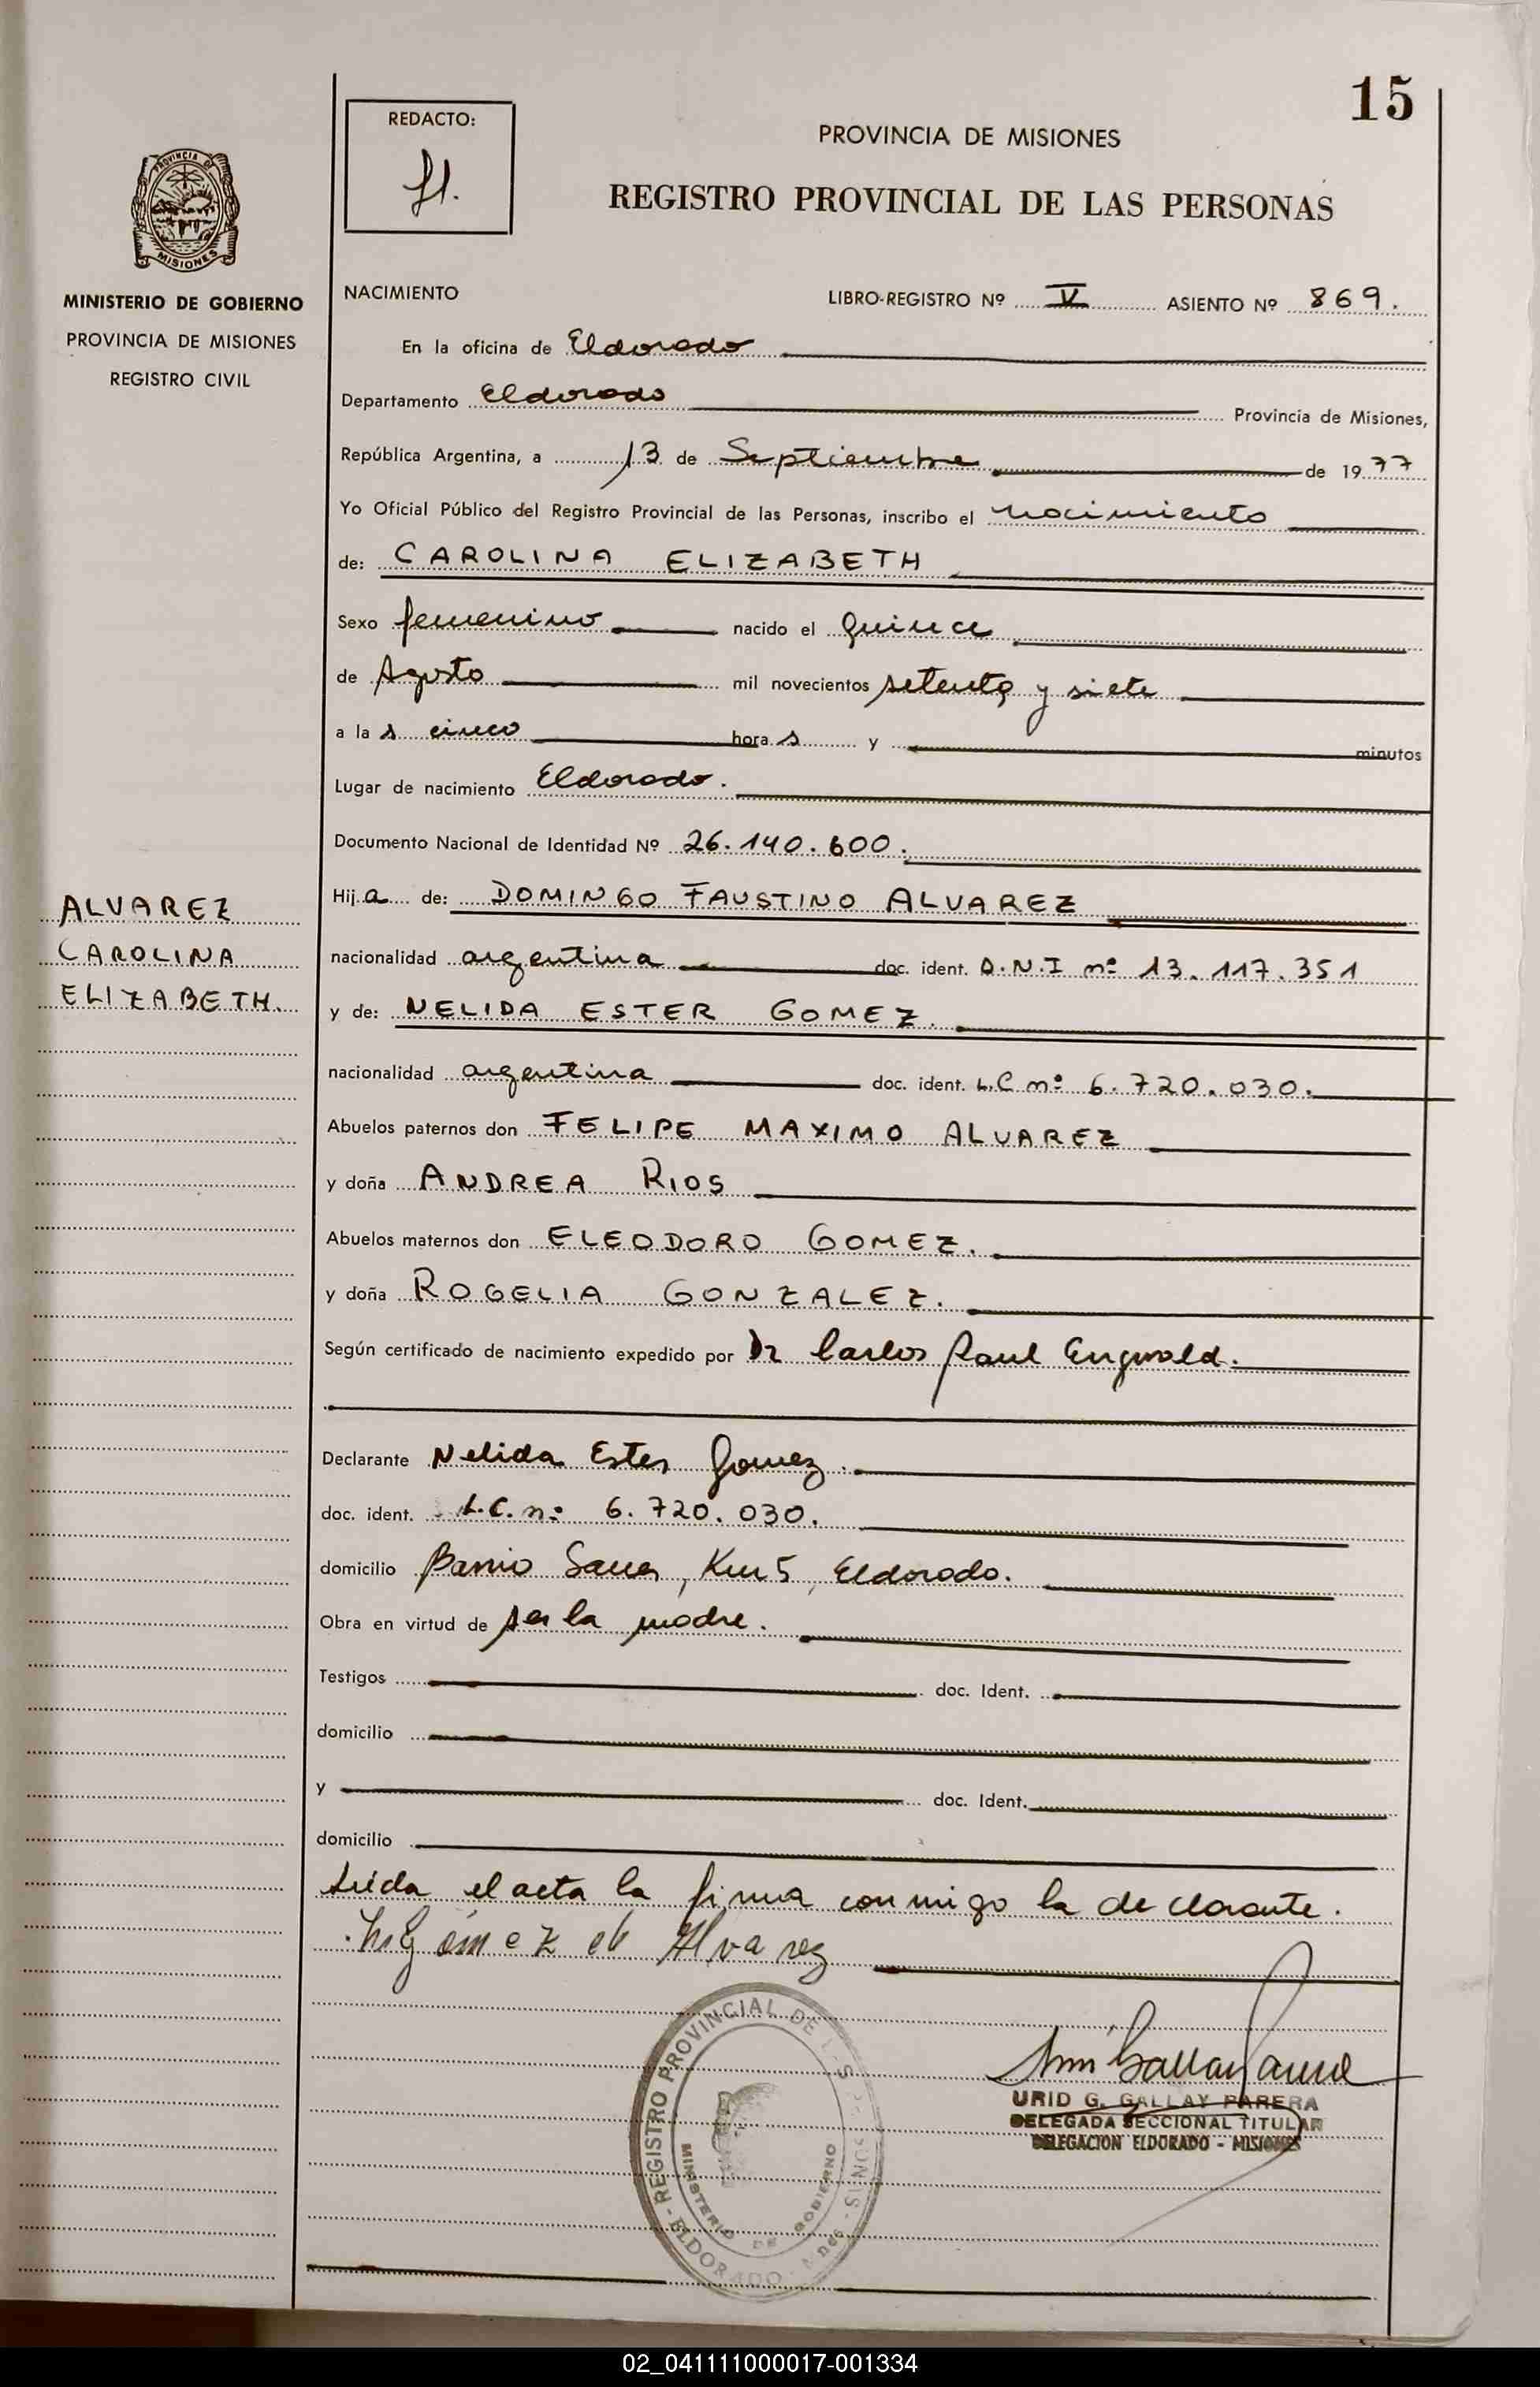 15
REDACTO:
PROVINCIA DE MISIONES
REGISTRO PROVINCIAL DE LAS PERSONAS
PROVINCIA DE
MISIONES
MINISTERIO DE GOBIERNO
PROVINCIA DE MISIONES
REGISTRO CIVIL
NACIMIENTO LIBRO-REGISTRO Nº V ASIENTO Nº 869.
En la oficina de Eldorado
Departamento Eldorado Provincia de Misiones,
República Argentina, a 13 de Septiembre de 1977
Yo Oficial Público del Registro Provincial de las Personas, inscribo el nacimiento
de: CAROLINA ELIZABETH
Sexo femenino nacido el quince
de Agosto mil novecientos setenta y siete
a las cinco horas y minutos
Lugar de nacimiento Eldorado.
Documento Nacional de Identidad Nº 26.140.600.
ALVAREZ
CAROLINA
ELIZABETH.
Hija de: DOMINGO FAUSTINO ALVAREZ
nacionalidad argentina doc. ident. D.N.I nº 13.117.351
y de: NELIDA ESTER GOMEZ.
nacionalidad argentina doc. ident. L.C nº 6.720.030.
Abuelos paternos don FELIPE MAXIMO ALVAREZ
y doña ANDREA RIOS
Abuelos maternos don ELEODORO GOMEZ.
y doña ROGELIA GONZALEZ.
Según certificado de nacimiento expedido por Dr Carlos Raul
Declarante Nelida Ester Gomez.
doc. ident. L.C. nº 6.720.030.
domicilio Barrio Km 5, Eldorado.
Obra en virtud de ser la madre.
Testigos doc. Ident.
domicilio
y doc. Ident.
domicilio
Leida el acta la firma conmigo la declarante.
Gómez de Alvarez
REGISTRO PROVINCIAL DE
MINISTERIO DE GOBIERNO
ELDORADO
URID G. GALLAY PARERA
DELEGADA SECCIONAL TITULAR
DELEGACION ELDORADO - MISIONES
02_041111000017-001334